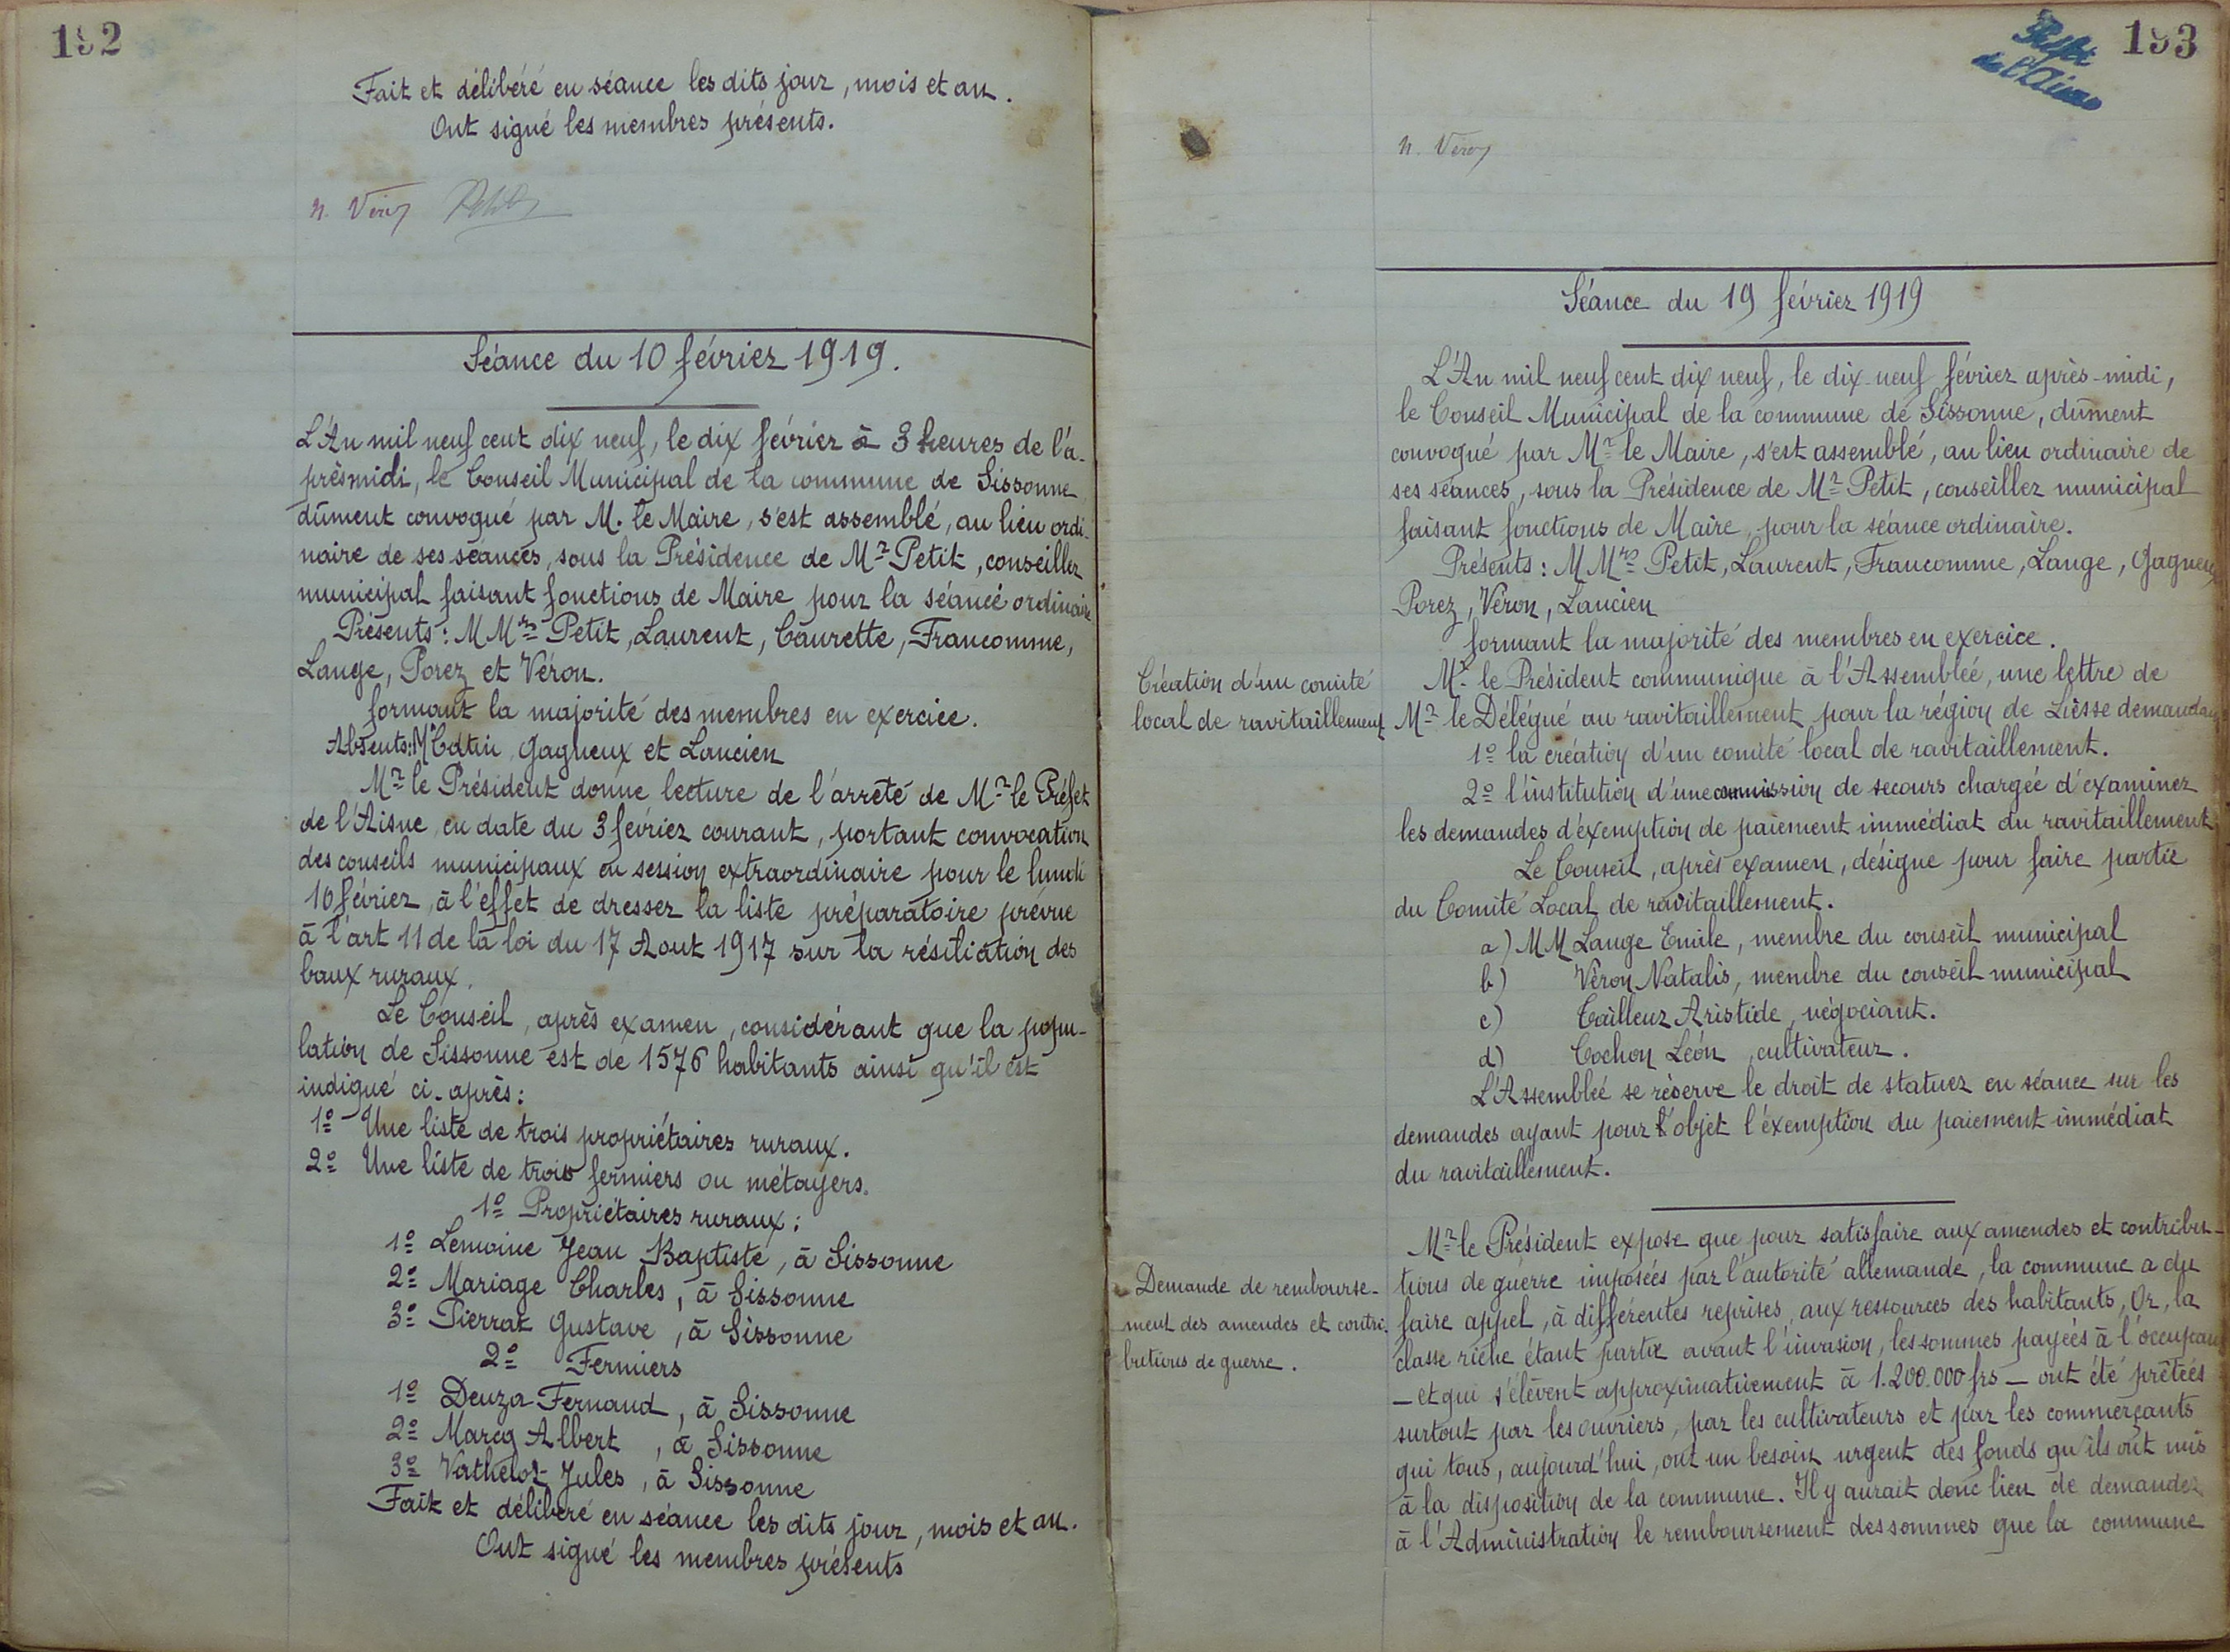 192
Fait et délibéré en séance les dits jour, mois et an.
Ont signé les membres présents.
N. Véron Petit
Séance du 10 février 1919.
L'An mil neuf cent dix neuf, le dix février à 3 heures de l'a-
près midi, le Conseil Municipal de la commune de Sissonne
dûment convoqué par M. le Maire, s'est assemblé, au lieu ordi-
naire de ses séances, sous la Présidence de Mr Petit, conseiller
municipal faisant fonctions de Maire pour la séance ordinaire
Présents: MMrs Petit, Laurent, Caurette, Francomme,
Lange, Porez et Véron.
formant la majorité des membres en exercice.
Absents: M Catin, Gagneux et Lancien
Mr le Président donne lecture de l'arrêté de Mr le Préfet
de l'Aisne en date du 3 février courant, portant convocation
des conseils municipaux en session extraordinaire pour le lundi
10 février, à l'effet de dresser la liste préparatoire prévue
à l'art 11 de la loi du 17 Aout 1917 sur la résiliation des
baux ruraux.
Le Conseil, après examen, considérant que la popu-
lation de Sissonne est de 1576 habitants ainsi qu'il est
indiqué ci-après:
1º Une liste de trois propriétaires ruraux.
2º Une liste de trois fermiers ou métayers.
1º Propriétaires ruraux:
1º Lemoine Jean Baptiste, à Sissonne
2º Mariage Charles, à Sissonne
3º Pierrat Gustave, à Sissonne
2º Fermiers
1º Deuza Fernand, à Sissonne
2º Marcq Albert, à Sissonne
3º Vathelot Jules, à Sissonne
Fait et délibéré en séance les dits jour, mois et an.
Ont signé les membres présents
193
Préfet
de l'Aisne
N. Véron
Séance du 19 février 1919
L'An mil neuf cent dix neuf, le dix-neuf février après-midi,
le Conseil Municipal de la commune de Sissonne, dûment
convoqué par Mr le Maire, s'est assemblé, au lieu ordinaire de
ses séances, sous la Présidence de Mr Petit, conseiller municipal
faisant fonctions de Maire, pour la séance ordinaire.
Présents: MMrs Petit, Laurent, Francomme, Lange, Gagneux
Porez, Véron, Lancien
formant la majorité des membres en exercice.
Création d'un comité
local de ravitaillement
Mr le Président communique à l'Assemblée, une lettre de
Mr le Délégué au ravitaillement pour la région de Liesse demandant
1º la création d'un comité local de ravitaillement.
2º l'institution d'une commission de secours chargée d'examiner
les demandes d'exemption de paiement immédiat du ravitaillement
Le Conseil, après examen, désigne pour faire partie
du Comité Local de ravitaillement.
a) MM Lange Emile, membre du conseil municipal
b) Véron Natalis, membre du conseil municipal
c) Tailleur Aristide, négociant.
d) Cochon Léon, cultivateur.
L'Assemblée se réserve le droit de statuer en séance sur les
demandes ayant pour l'objet l'exemption du paiement immédiat
du ravitaillement.
Demande de rembourse-
ment des amendes et contri-
butions de guerre.
Mr le Président expose que pour satisfaire aux amendes et contribu-
tions de guerre imposées par l'autorité allemande, la commune a du
faire appel, à différentes reprises, aux ressources des habitants, Or, la
classe riche étant partie avant l'invasion, les sommes payées à l'occupant
_ et qui s'élèvent approximativement à 1.200.000 frs _ ont été prêtées
surtout par les ouvriers, par les cultivateurs et par les commerçants
qui tous, aujourd'hui, ont un besoin urgent des fonds qu'ils ont mis
à la disposition de la commune. Il y aurait donc lieu de demander
à l'Administration le remboursement des sommes que la commune